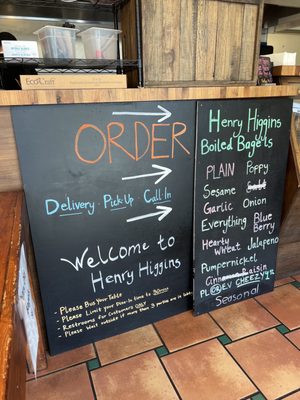 EcoCRAFT
ORDER
Delivery · Pick-up · Call In
Welcome to
Henry Higgins
- Please Bus Your Table
- Please Limit your Dine-In time to 30min
- Restrooms for Customers ONLY
- Please Wait outside if more than 3 parties are in line
Henry Higgins
Boiled Bagels
PLAIN Poppy
Sesame
Garlic Onion
Everything Blue Berry
Hearty Wheat Jalapeno
Pumpernickel
Cinn Raisin
CHEEZY
Seasonal